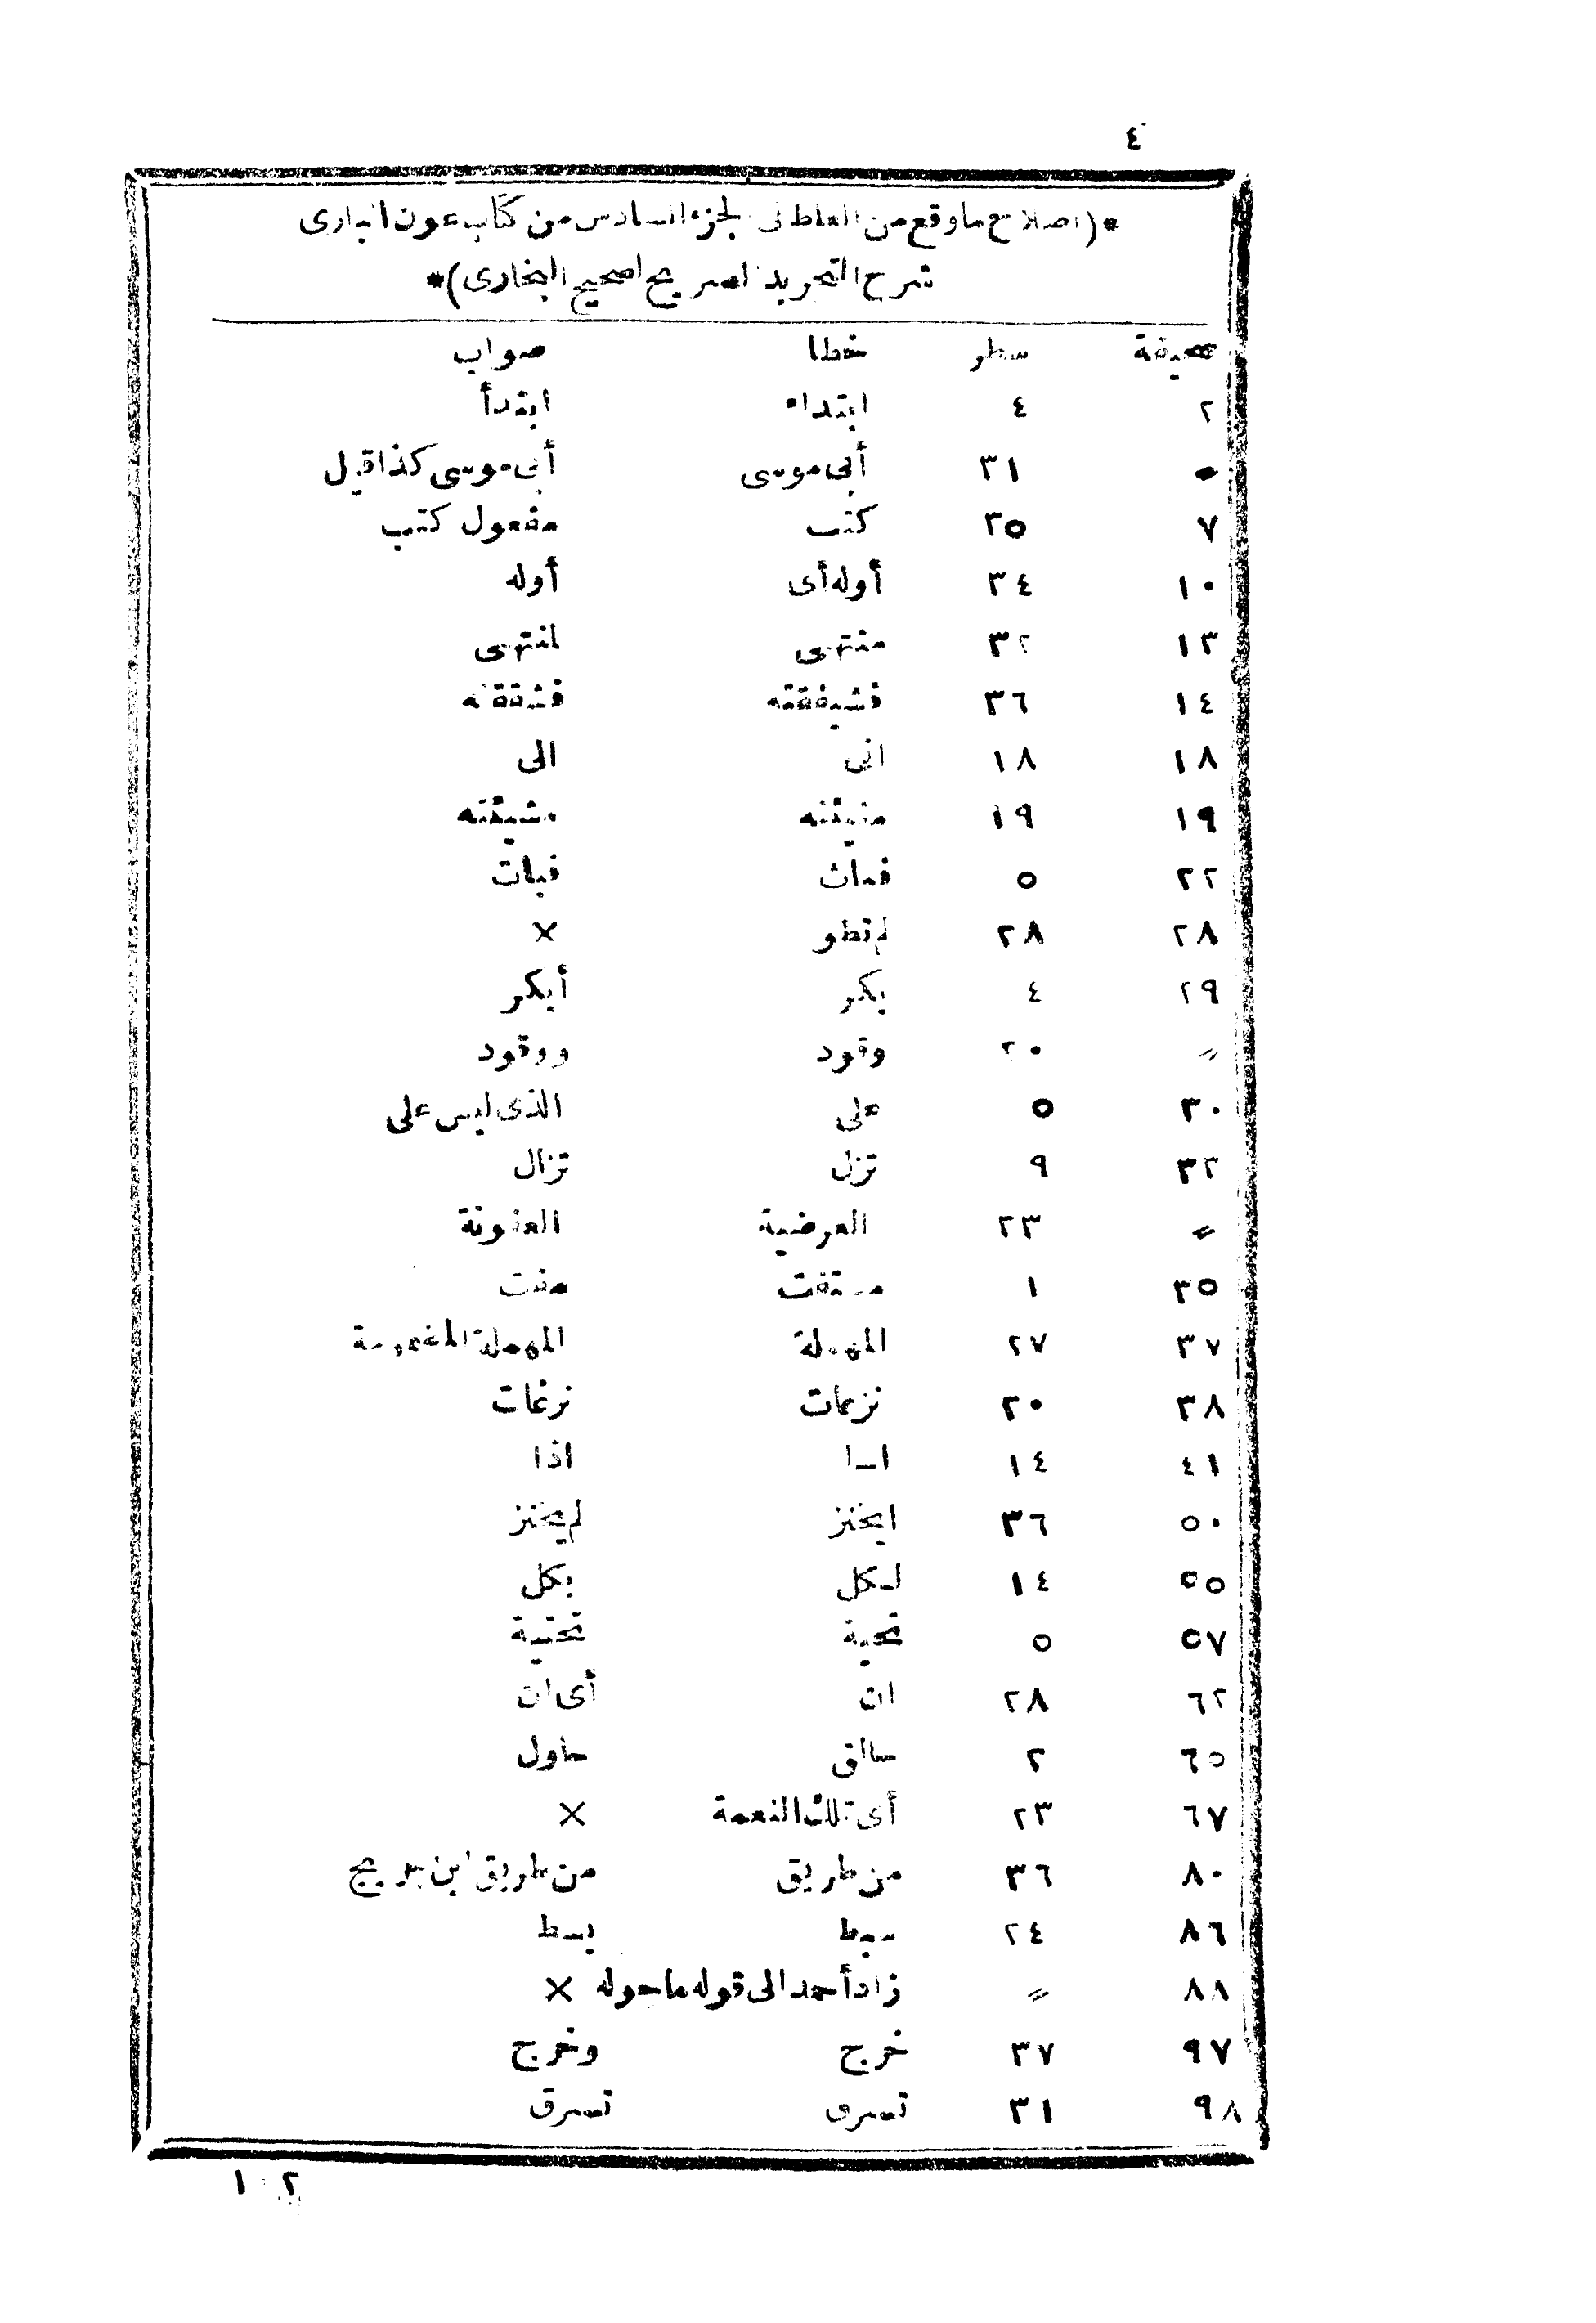 ٤
*(اصلاح ما وقع من الغلط فى الجزء السادس من كتاب عون البارى
شرح التجريد الصريح لصحيح البخارى)*
صحيفة سطر خطا صواب
٢ ٤ ابتداء ابتدأ
〃 ٣١ أبى موسى أبى موسى كذا قيل
٧ ٣٥ كتب مفعول كتب
١٠ ٣٤ أوله أى أوله
١٣ ٣٢ منتهى لمنتهى
١٤ ٣٦ فشيققته فشققته
١٨ ١٨ انى الى
١٩ ١٩ منيئته مشيئته
٢٢ ٥ فمات فبات
٢٨ ٢٨ لم تطو ×
٢٩ ٤ بكر أبكر
〃 ٢٠ وقود ووقود
٣٠ ٥ على الذى ليس على
٣٢ ٩ تزل تزال
〃 ٢٣ العرضية العفونة
٣٥ ١ مستفت مفت
٣٧ ٢٧ المهملة المهملة المضمومة
٣٨ ٢٠ نزعات نزغات
٤١ ١٤ اسا اذا
٥٠ ٣٦ ليخنز لم يخنز
٥٥ ١٤ لكل بكل
٥٧ ٥ تحية تحتية
٦٢ ٢٨ ان أى ان
٦٥ ٢ حاول
٦٧ ٢٣ أى تلك النعمة ×
٨٠ ٣٦ من طريق من طريق ابن جريج
٨٦ ٢٤ سبط بسط
٨٨ 〃 زاد أحمد الى قوله ما حوله ×
٩٧ ٣٧ خرج وخرج
٩٨ ٣١ تسرق